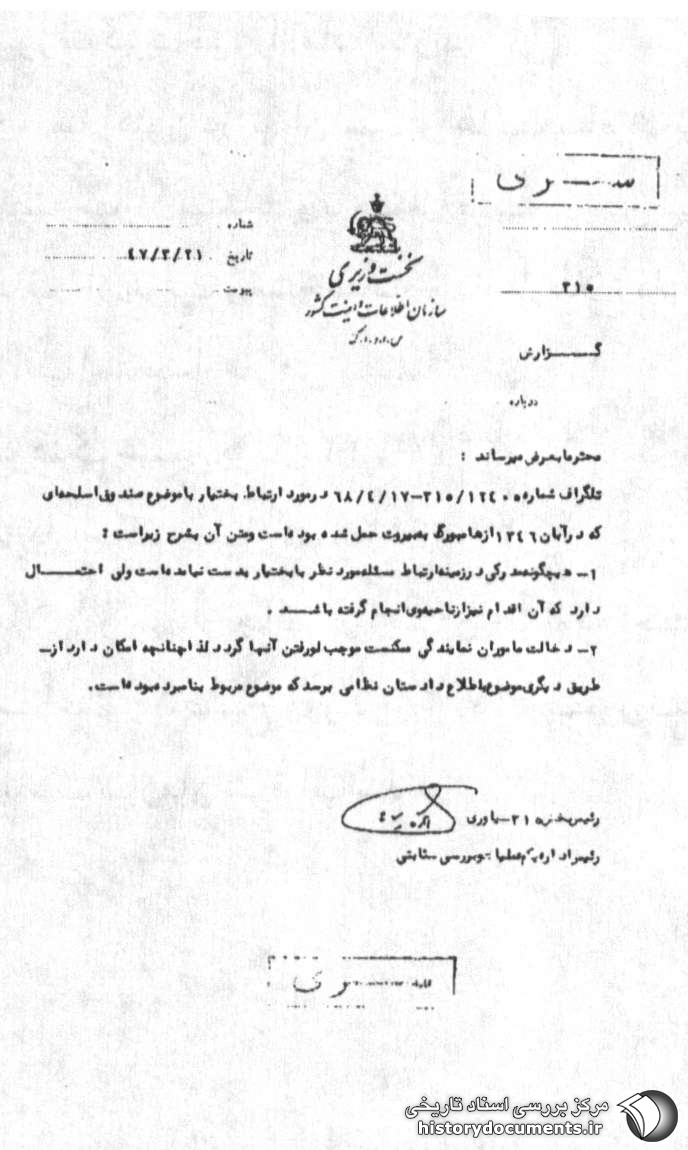 ســـری
شماره
تاریخ ۴۷/۳/۲۱
پیوست
نخست وزیری
سازمان اطلاعات و امنیت کشور
س.ا.و.ا.ک
۳۱۵
گـــزارش
درباره
محترما بعرض میرساند :
تلگراف شماره ۳۱۵/۱۲۴۰۵-۶۸/۴/۱۷ در مورد ارتباط بختیار با موضوع صندوق اسلحه‌ای
که در آبان ۱۳۴۶ از هامبورگ به بیروت حمل شده بوده است ومتن آن بشرح زیر است :
۱- هیچگونه مدرکی در زمینه ارتباط مسئله مورد نظر با بختیار بدست نیامده است ولی احتمــال
دارد که آن اقدام نیز از ناحیه وی انجام گرفته باشــد .
۲- دخالت ماموران نمایندگی ممکنست موجب لورفتن آنها گردد لذا چنانچه امکان دارد از-
طریق دیگری موضوع باطلاع دادستان نظامی برسد که موضوع مربوط بنامبرده بوده است.
رئیس بخش ۳۱۵- یاوری
رئیس اداره یکم عملیات و بررسی - ثابتی
ســـری
مرکز بررسی اسناد تاریخی
historydocuments.ir